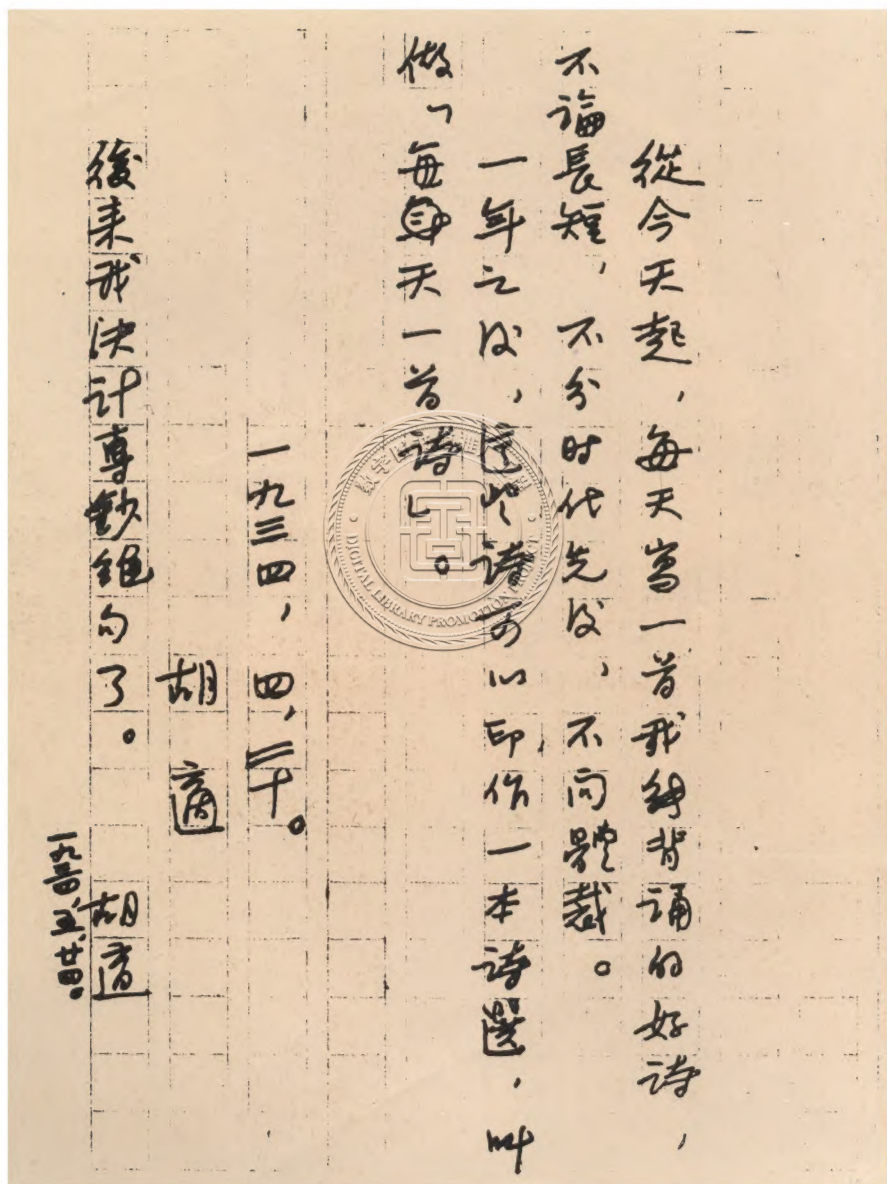 從今天起，每天寫一首我能背誦的好詩，
不論長短，不分时代先後，不问體裁。
一年之後，這些詩可以印作一本詩選，叫
做「每天一首詩」。
一九三四，四，二十。
胡適
後来我決計專鈔絕句了。 胡適
一九三四、五、廿四。
DIGITAL LIBRARY PROMOTION PROJECT